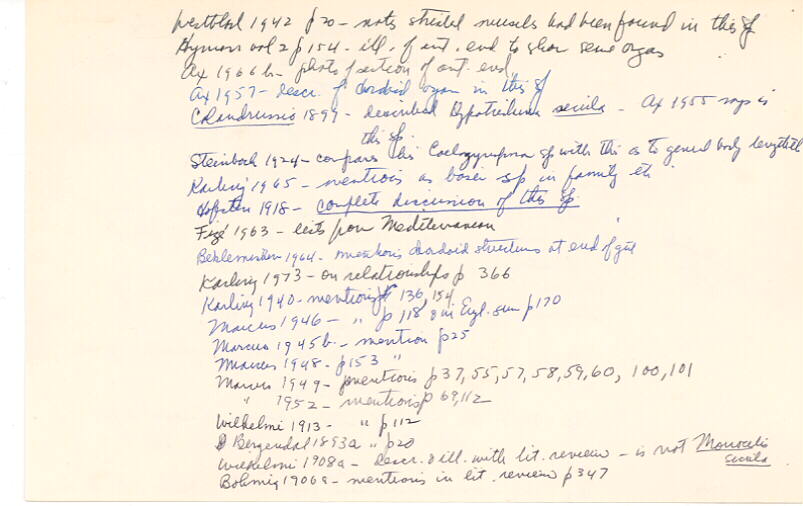 Westblad 1942 p 20 - nots striated muscles had been found in this sp
Hyman vol 2 p 154 - ill. of ant. end to show sense organs
Ax 1966 b - photo of section of ant. end
Ax 1957 - descr. of chordoid organ in this sp
Calandruccio 1899 - described Hypotrichina sicula - Ax 1955 says is
this sp.
Steinbock 1924 - compares his Coelogynopora sp with this as to general body length
Karling 1965 - mentions as basic sp in family etc
Hofsten 1918 - complete discussion of this sp.
Fizé 1963 - lists from Mediterranean
Beklemischev 1964 - mentions chordoid structures at end of gut
Karling 1973 - on relationships p 366
Karling 1940 - mentions p 136, 154
Marcus 1946 - " p 118, & in Engl. sum p 170
Marcus 1945 b - mention p 25
Marcus 1948 - p 153 "
Marcus 1949 - mentions p 37, 55, 57, 58, 59, 60, 100, 101
" 1952 - mentions p 69, 112
Wilhelmi 1913 - " p 112
Bergendal 1893a " p 20
Wilhelmi 1908a - descr. & ill. with lit. review - is not Monocelis
Böhmig 1906a - mentions in lit. review p 347